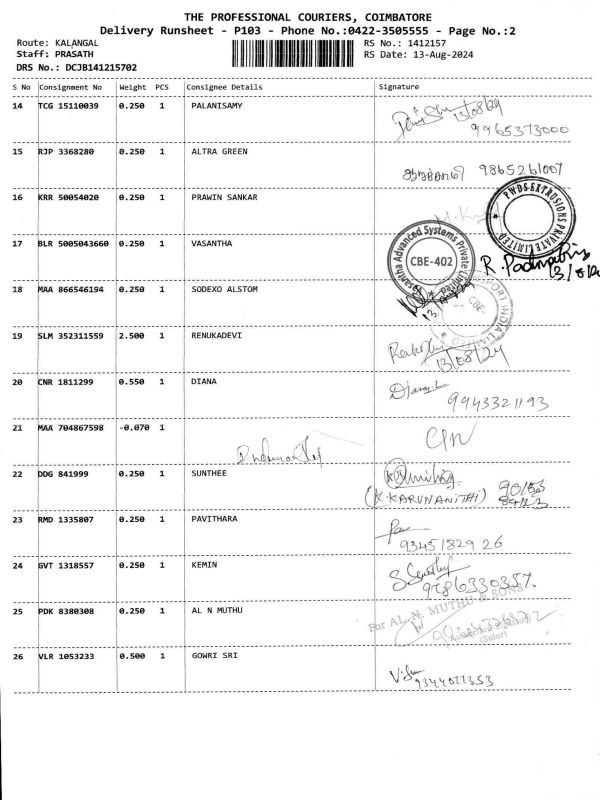 THE PROFESSIONAL COURIERS, COIMBATORE
Delivery Runsheet - P103 - Phone No.:0422-3505555 - Page No.:2
Route: KALANGAL
RS No.: 1412157
Staff: PRASATH
RS Date: 13-Aug-2024
DRS No.: DCJB141215702
S No Consignment No Weight PCS Consignee Details Signature
14 TCG 15110039 0.250 1 PALANISAMY
13/08/24
9965373000
15 RJP 3368280 0.250 1 ALTRA GREEN
9865261007
16 KRR 50054020 0.250 1 PRAWIN SANKAR
PWDS EXTRUSIONS PRIVATE LIMITED
17 BLR 5005043660 0.250 1 VASANTHA
Vasantha Advanced Systems Private Limited
CBE-402
R. Padma
18 MAA 866546194 0.250 1 SODEXO ALSTOM
INDIA LIMITED
CBE-
19 SLM 352311559 2.500 1 RENUKADEVI
13/08/24
20 CNR 1811299 0.550 1 DIANA
9943321193
21 MAA 704867598 -0.070 1
22 DDG 841999 0.250 1 SUNTHEE
(K. KARUNANITHI)
23 RMD 1335807 0.250 1 PAVITHARA
9345182926
24 GVT 1318557 0.250 1 KEMIN
9786330357.
25 PDK 8380308 0.250 1 AL N MUTHU
For AL. N. MUTHU & SONS
(Sulur)
26 VLR 1053233 0.500 1 GOWRI SRI
9344077353